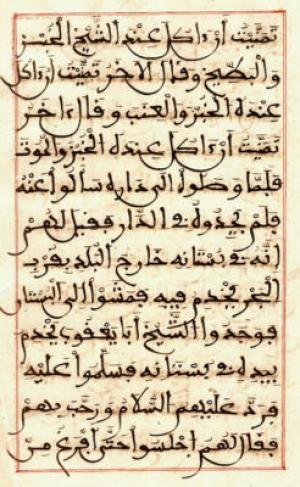 تمنيت أن ءاكل عند الشيخ الخبز
والبطيخ وقال الآخر تمنيت أن ءاكل
عنده الخبز والعنب وقال ءاخر
تمنيت أن ءاكل عنده الخبز والحوت
فلما وصلوا الى داره سألوا عنه
فلم يجدوه في الدار فقيل لهم
انه في بستانه خارج البلد بقرب
البحر يخدم فيه فمشوا الى البستان
فوجدوا الشيخ أبا يعقوب يخدم
بيده في بستانه فسلموا عليه
فرد عليهم السلام ورحب بهم
فقال لهم اجلسوا حتى أفرغ من